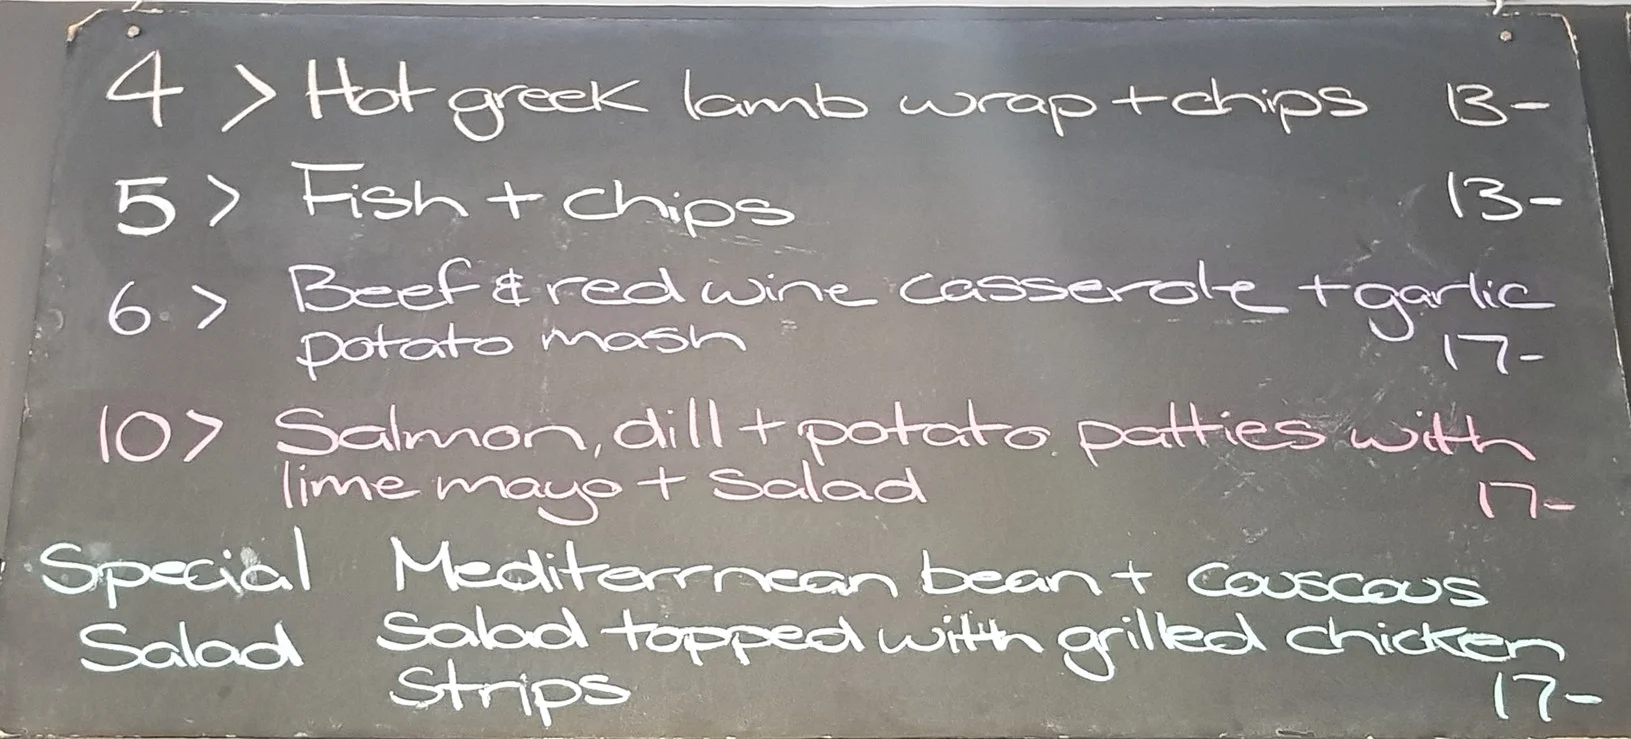 4 > Hot greek lamb wrap + chips 13-
5 > Fish + chips 13-
6 > Beef & red wine casserole + garlic
potato mash 17-
10 > Salmon, dill + potato patties with
lime mayo + Salad 17-
Special Mediterrnean bean + Couscous
Salad Salad topped with grilled chicken
Strips 17-